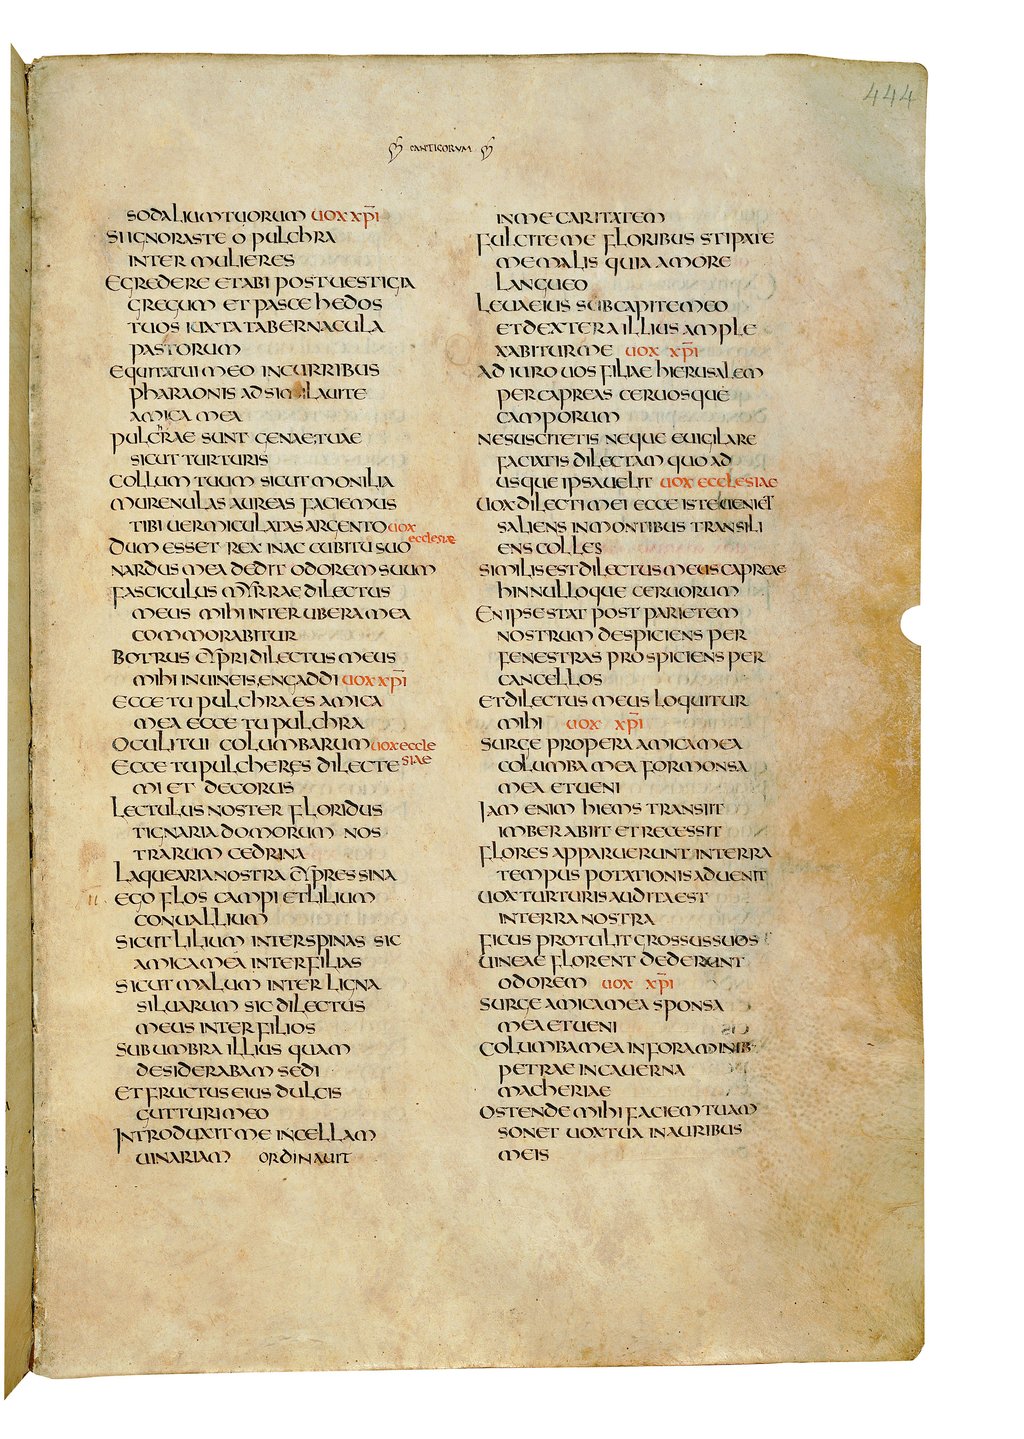 444
CANTICORUM
SODALIUM TUORUM UOX XPI
SI IGNORAS TE O PULCHRA
INTER MULIERES
EGREDERE ET ABI POST UESTIGIA
GREGUM ET PASCE HEDOS
TUOS IUXTA TABERNACULA
PASTORUM
EQUITATUI MEO IN CURRIBUS
PHARAONIS ADSIMILAUI TE
AMICA MEA
PULCHRAE SUNT GENAE TUAE
SICUT TURTURIS
COLLUM TUUM SICUT MONILIA
MURENULAS AUREAS FACIEMUS
TIBI UERMICULATAS ARGENTO UOX
ECCLESIAE
DUM ESSET REX IN AC CUBITU SUO
NARDUS MEA DEDIT ODOREM SUUM
FASCICULUS MYRRAE DILECTUS
MEUS MIHI INTER UBERA MEA
COMMORABITUR
BOTRUS CYPRI DILECTUS MEUS
MIHI IN UINEIS ENGADDI UOX XPI
ECCE TU PULCHRA ES AMICA
MEA ECCE TU PULCHRA
OCULI TUI COLUMBARUM UOX ECCLE
SIAE
ECCE TU PULCHER ES DILECTE
MI ET DECORUS
LECTULUS NOSTER FLORIDUS
TIGNARIA DOMORUM NOS
TRARUM CEDRINA
LAQUEARIA NOSTRA CYPRESSINA
II EGO FLOS CAMPI ET LILIUM
CONUALLIUM
SICUT LILIUM INTER SPINAS SIC
AMICA MEA INTER FILIAS
SICUT MALUM INTER LIGNA
SILUARUM SIC DILECTUS
MEUS INTER FILIOS
SUB UMBRA ILLIUS QUAM
DESIDERABAM SEDI
ET FRUCTUS EIUS DULCIS
GUTTURI MEO
INTRODUXIT ME IN CELLAM
UINARIAM ORDINAUIT
IN ME CARITATEM
FULCITE ME FLORIBUS STIPATE
ME MALIS QUIA AMORE
LANGUEO
LEUA EIUS SUB CAPITE MEO
ET DEXTERA ILLIUS AMPLE
XABITUR ME UOX XPI
ADIURO UOS FILIAE HIERUSALEM
PER CAPREAS CERUOSQUE
CAMPORUM
NE SUSCITETIS NEQUE EUIGILARE
FACIATIS DILECTAM QUOAD
USQUE IPSA UELIT UOX ECCLESIAE
UOX DILECTI MEI ECCE ISTE UENIET
SALIENS IN MONTIBUS TRANSILI
ENS COLLES
SIMILIS EST DILECTUS MEUS CAPREAE
HINNULLOQUE CERUORUM
EN IPSE STAT POST PARIETEM
NOSTRUM DESPICIENS PER
FENESTRAS PROSPICIENS PER
CANCELLOS
ET DILECTUS MEUS LOQUITUR
MIHI UOX XPI
SURGE PROPERA AMICA MEA
COLUMBA MEA FORMONSA
MEA ET UENI
IAM ENIM HIEMS TRANSIIT
IMBER ABIIT ET RECESSIT
FLORES APPARUERUNT IN TERRA
TEMPUS POTATIONIS ADUENIT
UOX TURTURIS AUDITA EST
IN TERRA NOSTRA
FICUS PROTULIT GROSSUS SUOS
UINEAE FLORENT DEDERUNT
ODOREM UOX XPI
SURGE AMICA MEA SPONSA
MEA ET UENI
COLUMBA MEA IN FORAMINIB
PETRAE IN CAUERNA
MACHERIAE
OSTENDE MIHI FACIEM TUAM
SONET UOX TUA IN AURIBUS
MEIS